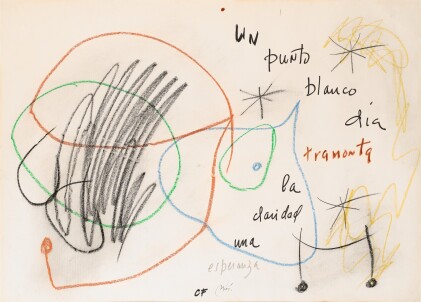 un
punto
blanco
día
tramonta
la
claridad
una
esperanza
CF